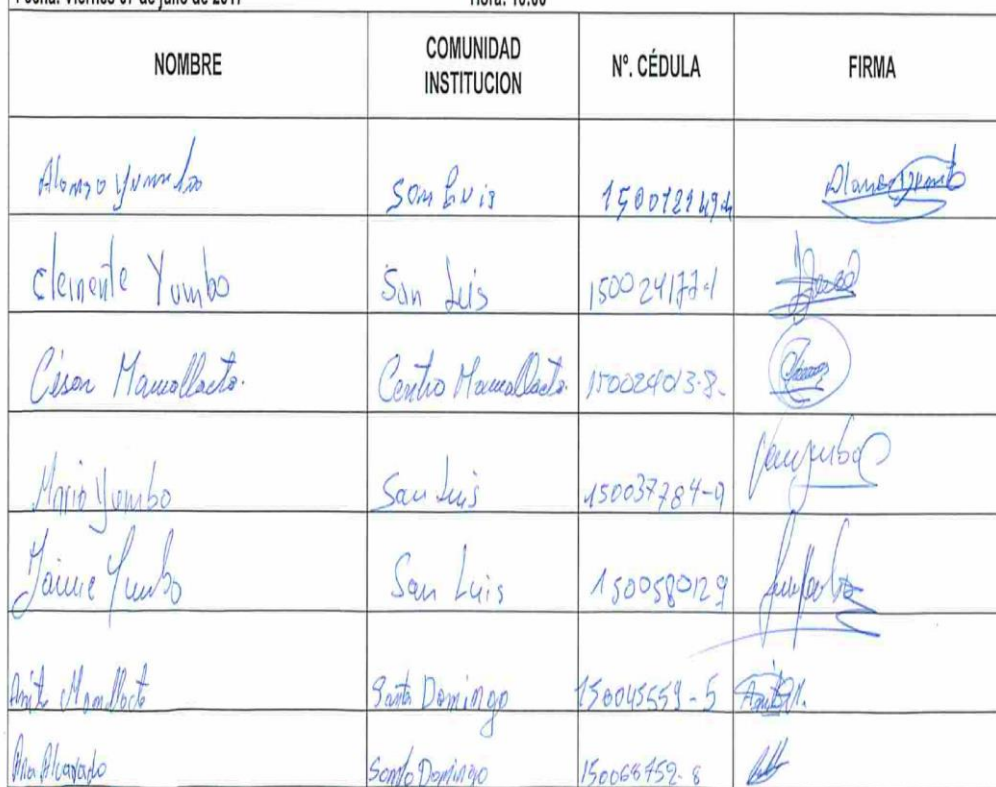 Fecha: Viernes 07 de julio de 2017 Hora: 10:00
NOMBRE COMUNIDAD INSTITUCION Nº. CÉDULA FIRMA
Alonso Yumbo San Luis Alonso Yumbo
Clemente Yumbo San Luis 150024177-1
César Mamallacta. Centro Mamallacta. 150024013-8.
Mario Yumbo San Luis 150037784-9
Jaime Yumbo San Luis 1500580129
Anita Mamallacta Santo Domingo 150045559-5
Ana Alvarado Santo Domingo 150068752-8